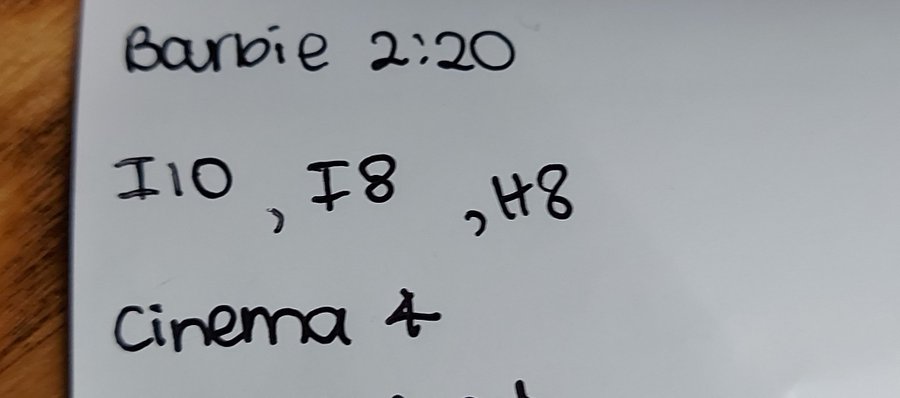 Barbie 2:20
I10, I8, H8
Cinema 4